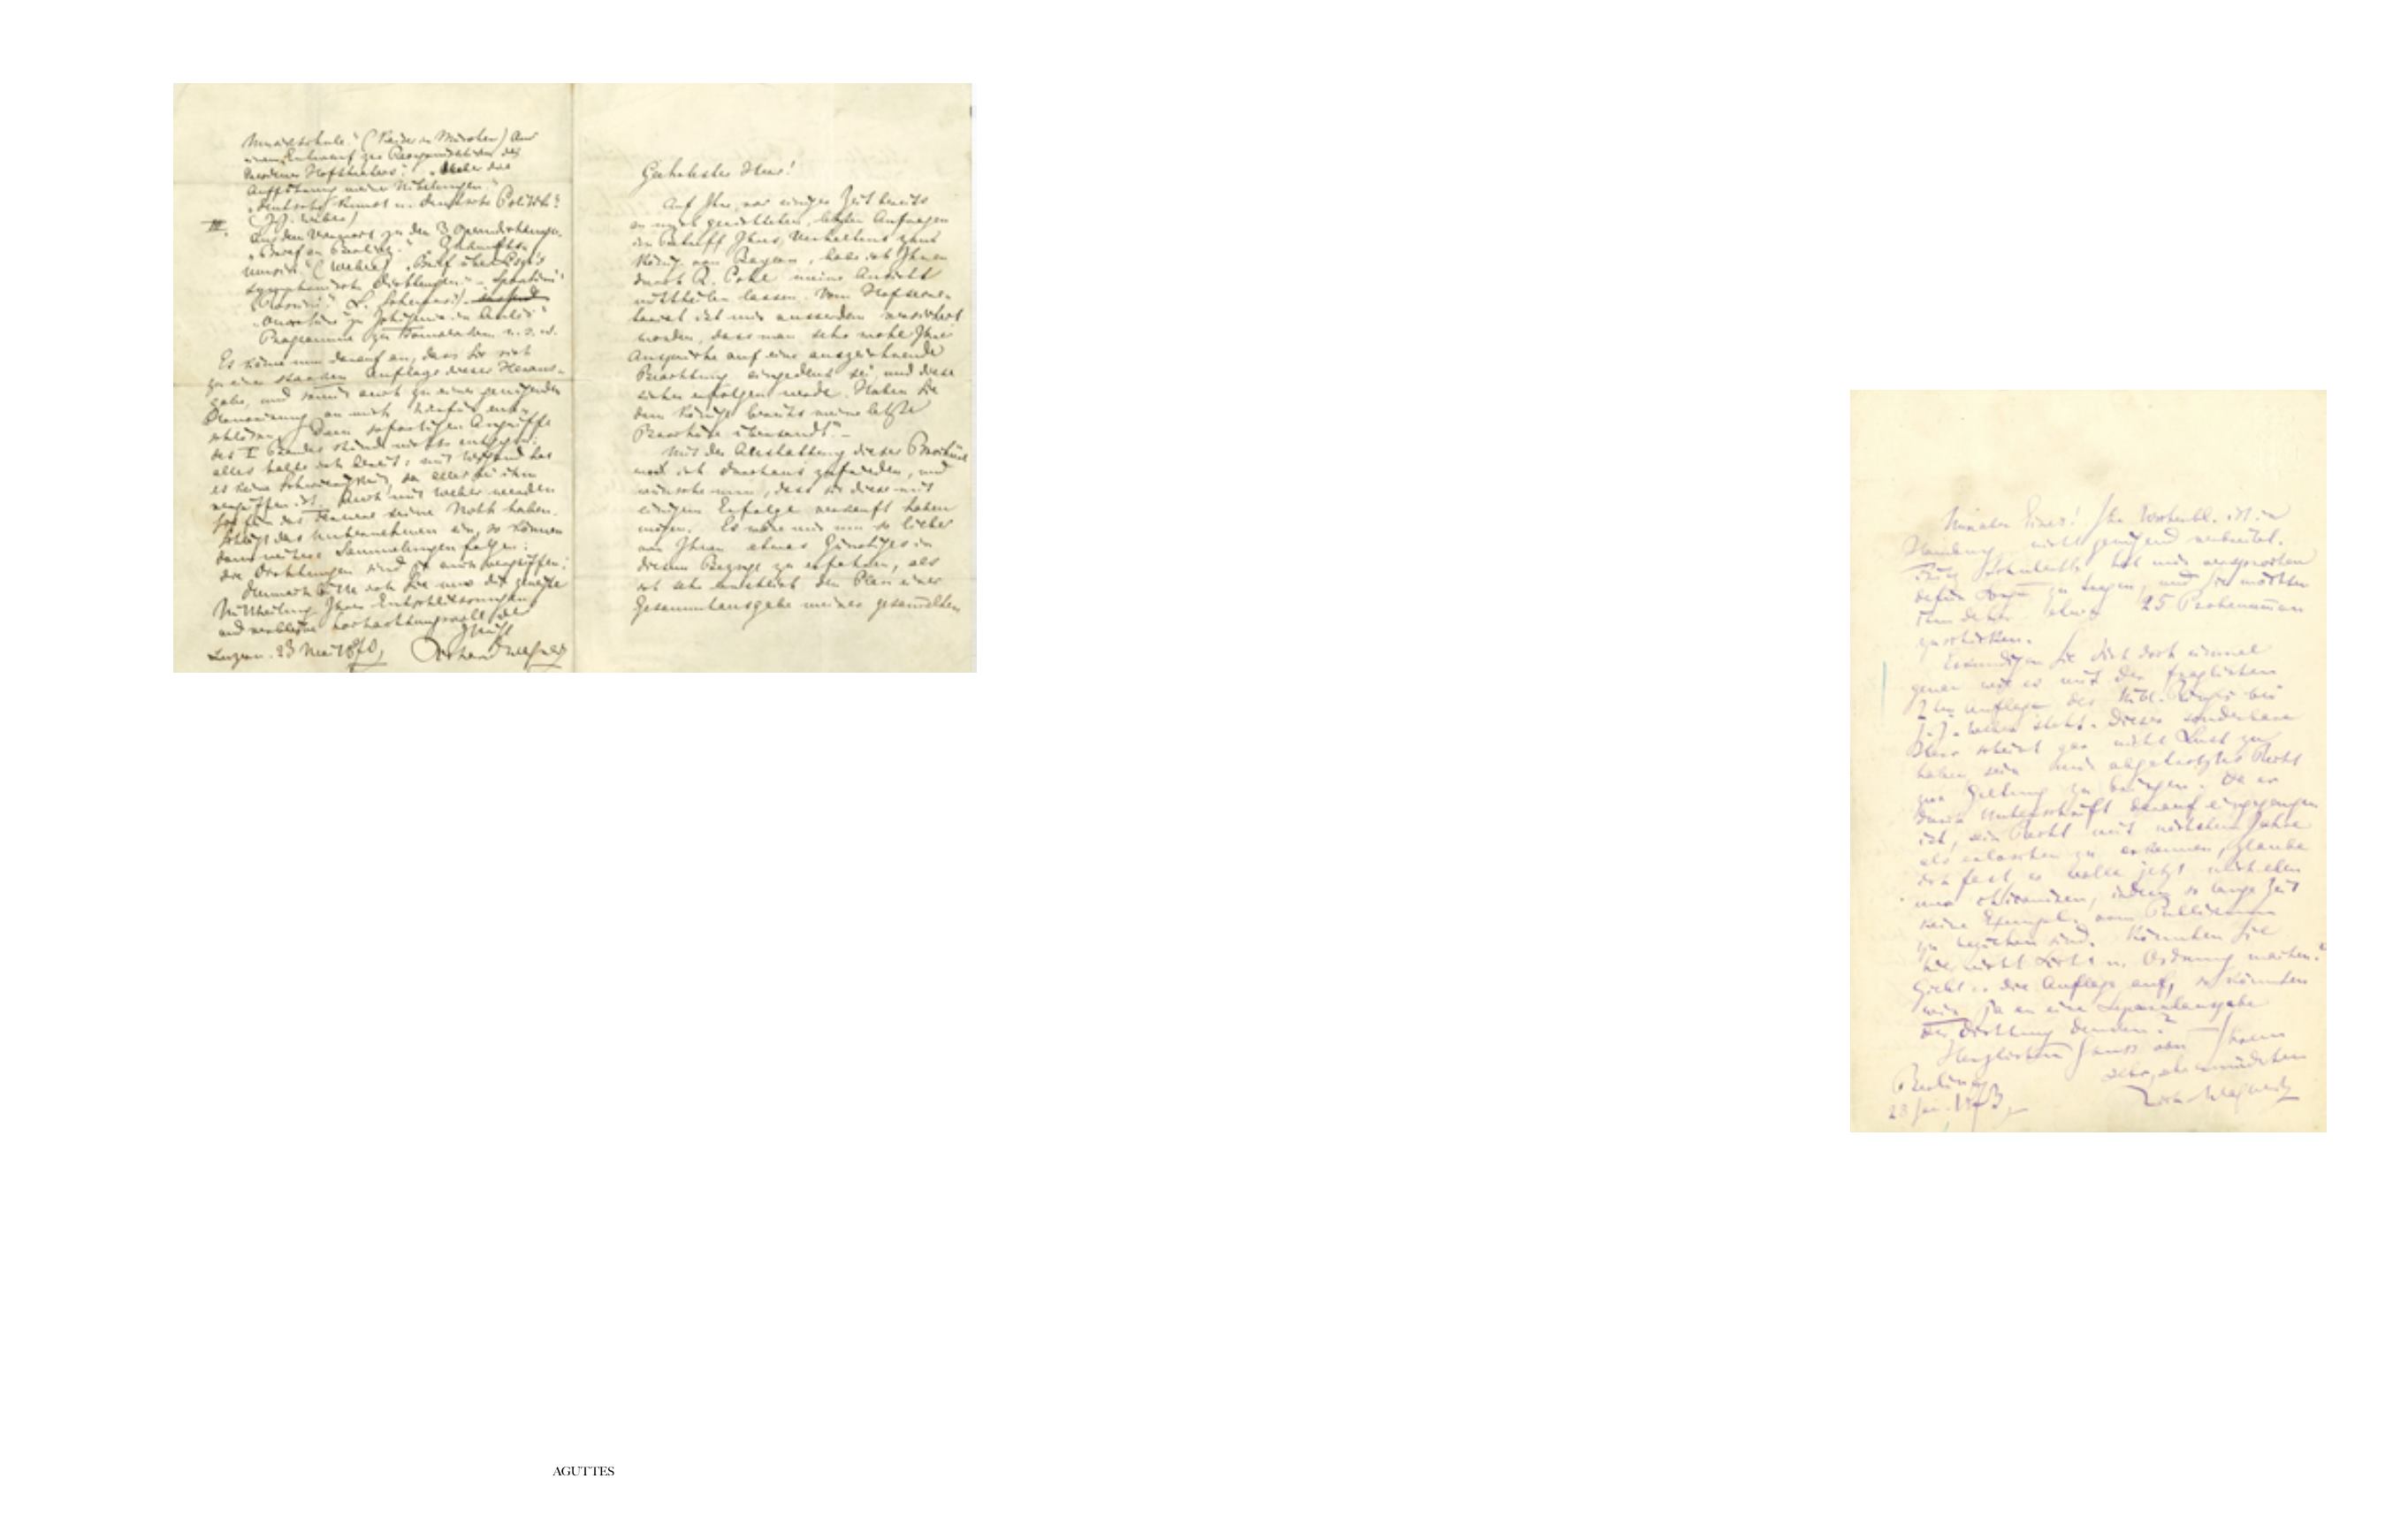 Musikschule." (Kaiser in München) Aus
einem "Entwurf zur Reorganisation des
Dresdener Hoftheaters". "Ueber die
Aufführung meiner Nibelungen."
"Deutsche Kunst u. Deutsche Politik"
(J.J. Weber)
III.
Aus dem Vorwort zu den 3 Operndichtungen.
"Brief an Berlioz." Zukunfts-
musik" (Weber) "Brief über Liszt's
symphonische Dichtungen" - Spontini"
"Rossini"
"Ouvertüre zu Iphigenia in Aulis"
Programme zu Tannhäuser u.s.w.
Es käme nun darauf an, dass Sie sich
zu einer starken Auflage dieser Heraus-
gabe, und somit auch zu einer genügenden
Honorirung an mich hierfür ent-
schlössen. Dem sofortigen Angriffe
des I Bandes stünde nichts entgegen:
alles halte ich bereit; mit Wigand hat
es keine Schwierigkeit, da alles bei ihm
vergriffen ist. Auch mit Weber werden
für das seine Noth haben.
Schlägt das Unternehmen ein, so können
dann weitere Sammlungen folgen:
die Dichtungen sind ja auch vergriffen.
Demnach bitte ich Sie nun die geneigte
Mittheilung Ihrer Entschliessungen
und verbleibe hochachtungsvoll der
Ihrige
Luzern. 23 Mai 1870, Richard Wagner
Geehrtester Herr!
Auf Ihre, vor einiger Zeit bereits
an mich gerichteten, letzten Anfragen
in Betreff Ihres Verhaltens zum
König von Bayern, habe ich Ihnen
durch R. Pohl meine Ansicht
mittheilen lassen. Vom Hofsecre-
tariat ist mir ausserdem versichert
worden, dass man sehr wohl Ihrer
Ansprüche auf eine auszeichnende
Beachtung eingedenk sei, und diese
sicher erfolgen werde. Haben Sie
dem Könige bereits meine letzte
Broschüre übersandt? -
Mit der Ausstattung dieser Broschüre
war ich durchaus zufrieden, und
wünsche nun, dass Sie diese mit
einigem Erfolge verkauft haben
mögen. Es wäre mir um so lieber
von Ihnen etwas Günstiges in
diesem Bezuge zu erfahren, als
ich sehr ernstlich den Plan einer
Gesammtausgabe meiner gesammelten
Ihr Wochenbl. ist in
Hamburg nicht genügend verbreitet.
hat mir versprochen
dafür Sorge zu tragen, und Sie möchten
ihm daher etwa 25 Probenummern
zuschicken.
Erkundigen Sie sich doch einmal
genau wie es mit der fraglichen
2ten Auflage des Nibl. Ringes bei
J.J. Weber steht. Dieser sonderbare
Herr scheint gar nicht Lust zu
haben sein mir abgetrotztes Recht
zur Geltung zu bringen. Da er
durch Unterschrift darauf eingegangen
ist, sein Recht mit nächstem Jahre
als erloschen zu erkennen, glaube
ich fast, er wolle jetzt mich eben
nur chicaniren, indem so lange Zeit
keine Exemplare vom Publikum
zu beziehen sind. Könnten Sie
hier nicht Licht u. Ordnung machen?
Giebt er die Auflage auf, so könnten
wir ja an eine Separatausgabe
der Dichtung denken? -
Herzlichen Gruss von Ihrem
sehr, sehr ermüdeten
Berlin
23 Jan. 1873, Rich. Wagner
AGUTTES